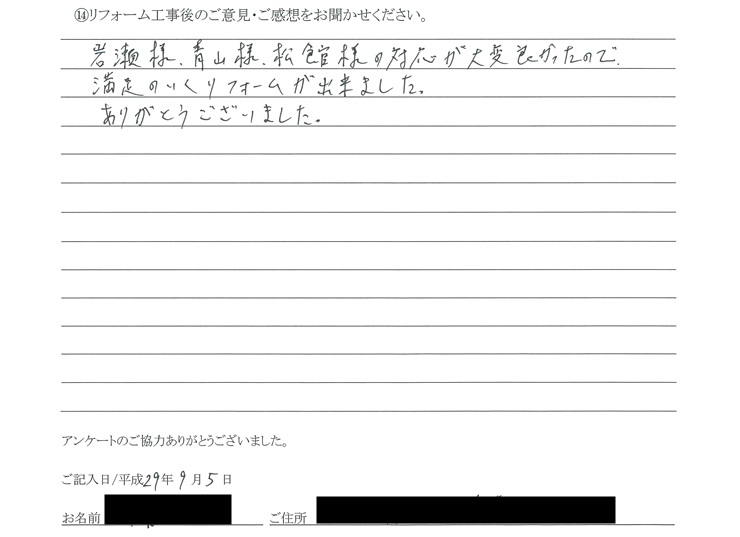 ⑭リフォーム工事後のご意見・ご感想をお聞かせください。
岩瀬様、青山様、松舘様の対応が大変良かったので、
満足のいくリフォームが出来ました。
ありがとうございました。
アンケートのご協力ありがとうございました。
ご記入日/平成29年9月5日
お名前 ご住所